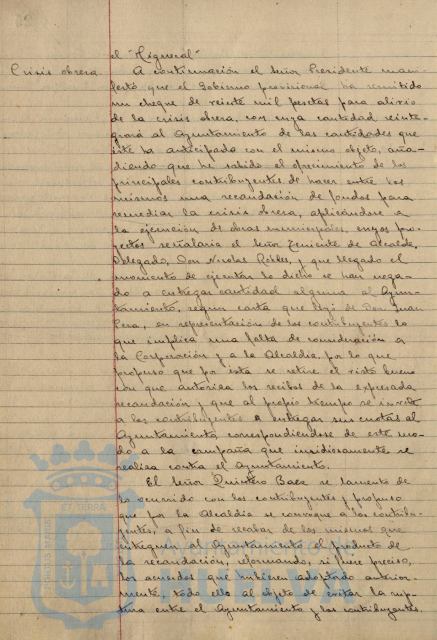 el "Higueral"
Crisis obrera
A continuación el Señor Presidente mani-
festó que el Gobierno provisional ha remitido
un cheque de veinte mil pesetas para alivio
de la crisis obrera, con cuya cantidad reinte-
grará al Ayuntamiento de las cantidades que
éste ha anticipado con el mismo objeto, aña-
diendo que ha sabido el ofrecimiento de los
principales contribuyentes de hacer entre los
mismos una recaudación de fondos para
remediar la crisis obrera, aplicándose a
la ejecución de obras municipales, cuyos pro-
yectos señalaría el Señor Teniente de Alcalde,
Delegado, Don Nicolas Robles, y que llegado el
momento de ejecutar lo dicho se han nega-
do a entregar cantidad alguna al Ayun-
tamiento, según carta que de Don Juan
en representación de los contribuyentes lo
que implica una falta de consideración a
la Corporación y a la Alcaldía, por lo que
propuso que por ésta se retire el visto bueno
con que autoriza los recibos de la expresada
recaudación y que al propio tiempo se invite
a los contribuyentes a entregar sus cuotas al
Ayuntamiento correspondiendose de este mo-
do a la campaña que insidiosamente se
realiza contra el Ayuntamiento.
El Señor Quintero Baez se lamenta de
lo ocurrido con los contribuyentes y propuso
que por la Alcaldía se convoque a los contribu-
yentes, a fin de recabar de los mismos que
entreguen al Ayuntamiento el producto de
la recaudación, reformando, si fuere preciso,
los acuerdos que hubieren adoptado anterior-
mente, todo ello al objeto de evitar la rup-
tura entre el Ayuntamiento y los contribuyentes.